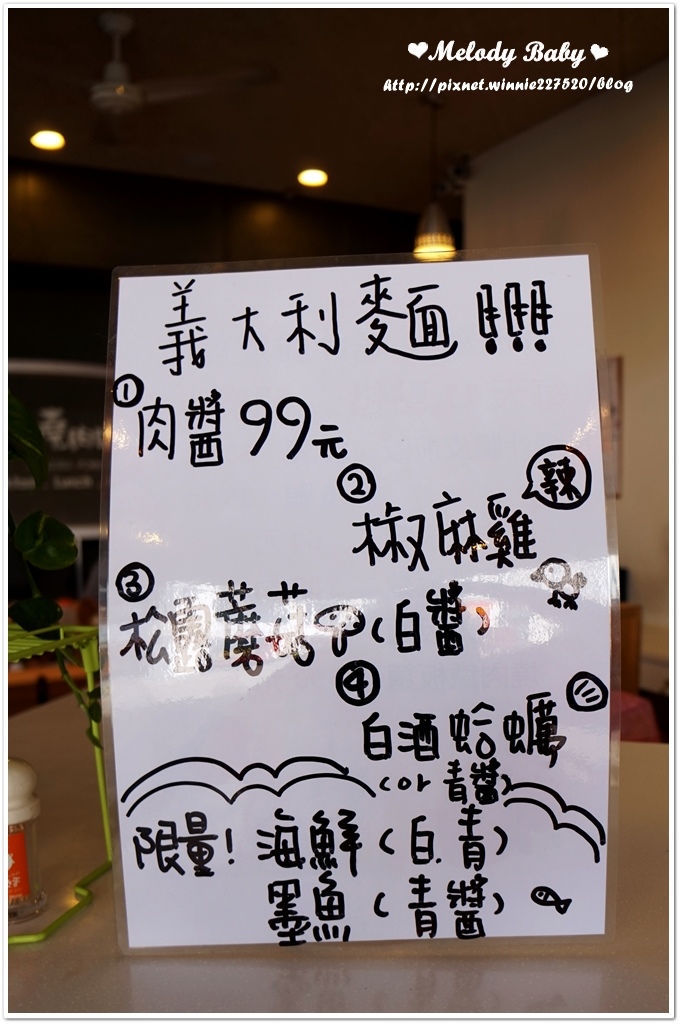 ❤Melody Baby❤
http://pixnet.winnie227520/blog
義大利麵!!!
① 肉醬 99元
② 椒麻雞 辣
③ 松露蘑菇 (白醬)
④ 白酒蛤蠣
(or 青醬)
限量! 海鮮 (白.青)
墨魚 (青醬)